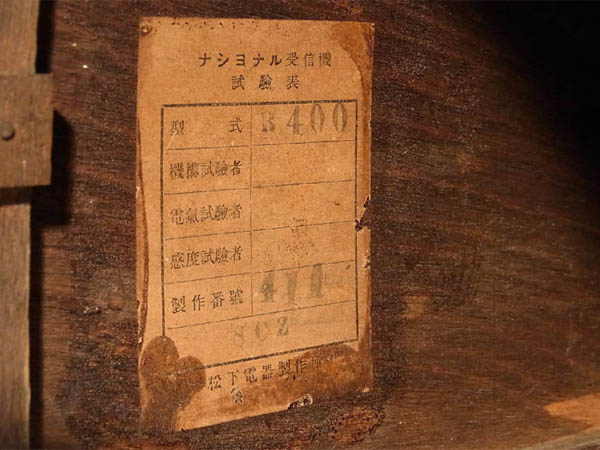 ナシヨナル受信機
試驗表
型式 R400
機構試驗者
電氣試驗者
感度試驗者
製作番號
松下電器製作所